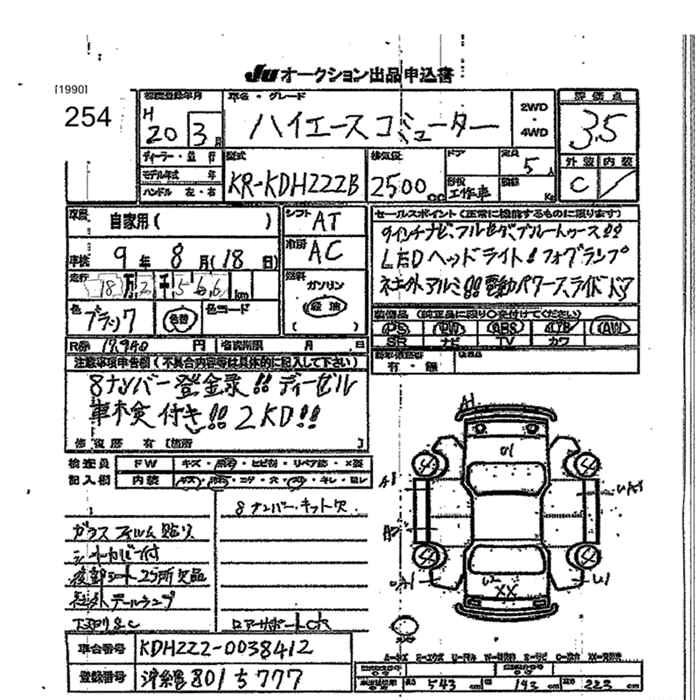 JU オークション出品申込書
[1990]
254
初度登録年月
車名・グレード
2WD・4WD
評価点
H 20 3月
ハイエースコミューター
3.5
ディーラー・並行
型式
排気量
ドア
定員
外装 内装
モデル年式 年
ハンドル 左・右
KR-KDH222B
2500cc
形状 工作車
5人
C
車歴 自家用( )
シフト AT
セールスポイント(正常に機能するものに限ります)
車検 9年8月(18日)
冷房 AC
9インチナビ,フルセグ,ブルートゥース!!
LEDヘッドライト!フォグランプ
社外アルミ!!電動パワースライドドア
走行 18万2千566km
燃料 ガソリン 軽油
色 ブラック 色替 色コード
装備品(純正品に限り○を付けてください)
PS PW ABS エアB AW
SR ナビ TV カワ
R券 17,940円 名変期限 月 日
有・無
注意事項申告欄(不具合内容等は具体的に記入して下さい)
8ナンバー登録!!ディーゼル
車検付き!!2KD!!
修復歴 有 [箇所 ]
検査員 FW キズ・飛石・ヒビ割・リペア跡・×要
記入欄 内装 キズ・汚れ・コゲ・穴・スレ・キレ・阻レ
8ナンバー・キット欠
ガラスフィルム貼り
シートカバー付
後部シート2ヶ所欠品
社外テールランプ
下廻りS,C
ロアーサポートCR
A1
01
4 4
A1
UA1
A2
4 4
UA1
U2
XX
U1
車台番号 KDH222-0038412
登録番号 沖縄 801 ち 777
長さ 543cm 幅 192cm 高さ 222cm